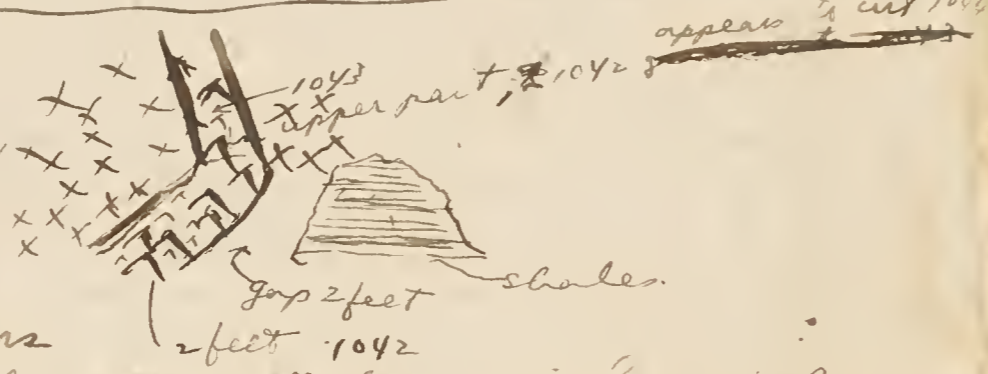 appears to cut 1043
1043
upper part, 1042
shales.
gap 2 feet
2 feet 1042